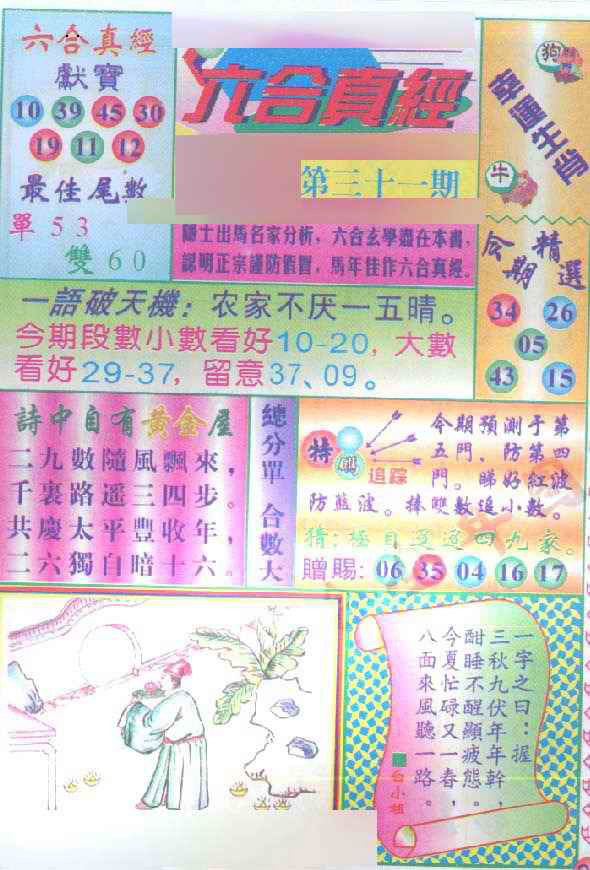 六合真經
獻寶
10 39 45 30
19 11 12
最佳尾數
單 5 3
雙 6 0
六合真經
第三十一期
士出馬名家分析，六合玄學盡在本書，
認明正宗謹防假冒，馬年佳作六合真經。
狗
幸運生肖
牛
今期精選
34 26
05
43 15
一語破天機：农家不厌一五晴。
今期段數小數看好10-20，大數
看好29-37，留意37、09。
詩中自有黃金屋
二九數隨風飄來，
千裏路遥三四步。
共慶太平豐收年，
二六獨自暗十六。
總分單 合數大
特
追踪
今期預測于第
五門、防第四
門。睇好紅波
防藍波。捧雙數追小數。
猜：極目遥遥四九家。
贈賜：06 35 04 16 17
一字之曰：握
三秋九伏年年幹，
酣睡不醒顯疲態。
今夏忙碌又一春，
八面來風聽一路。
台小姐